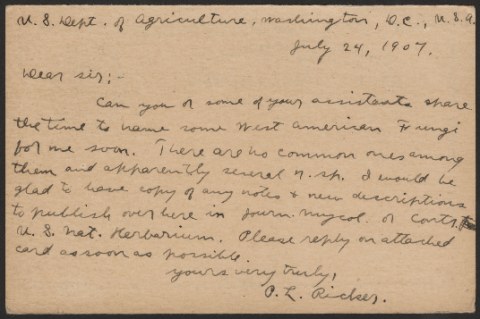 U. S. Dept. of Agriculture, Washington, D.C., U.S.A.
July 24, 1907.
Dear sir;-
Can you or some of your assistants spare
the time to name some West American Fungi
for me soon. There are no common ones among
them and apparently several n. sp. I would be
glad to have copy of any notes & new descriptions
to publish over here in Journ. Mycol. or Contr. to
U. S. Nat. Herbarium. Please reply on attached
card as soon as possible.
Yours very truly,
P. L. Ricker.